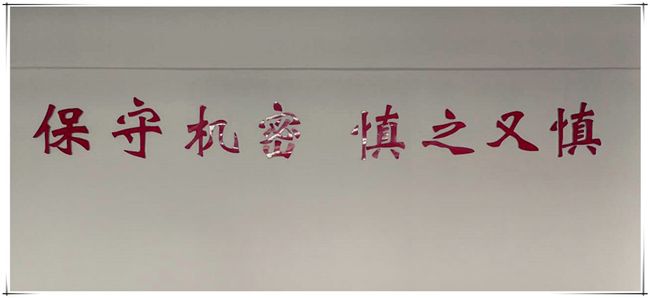 保守机密 慎之又慎